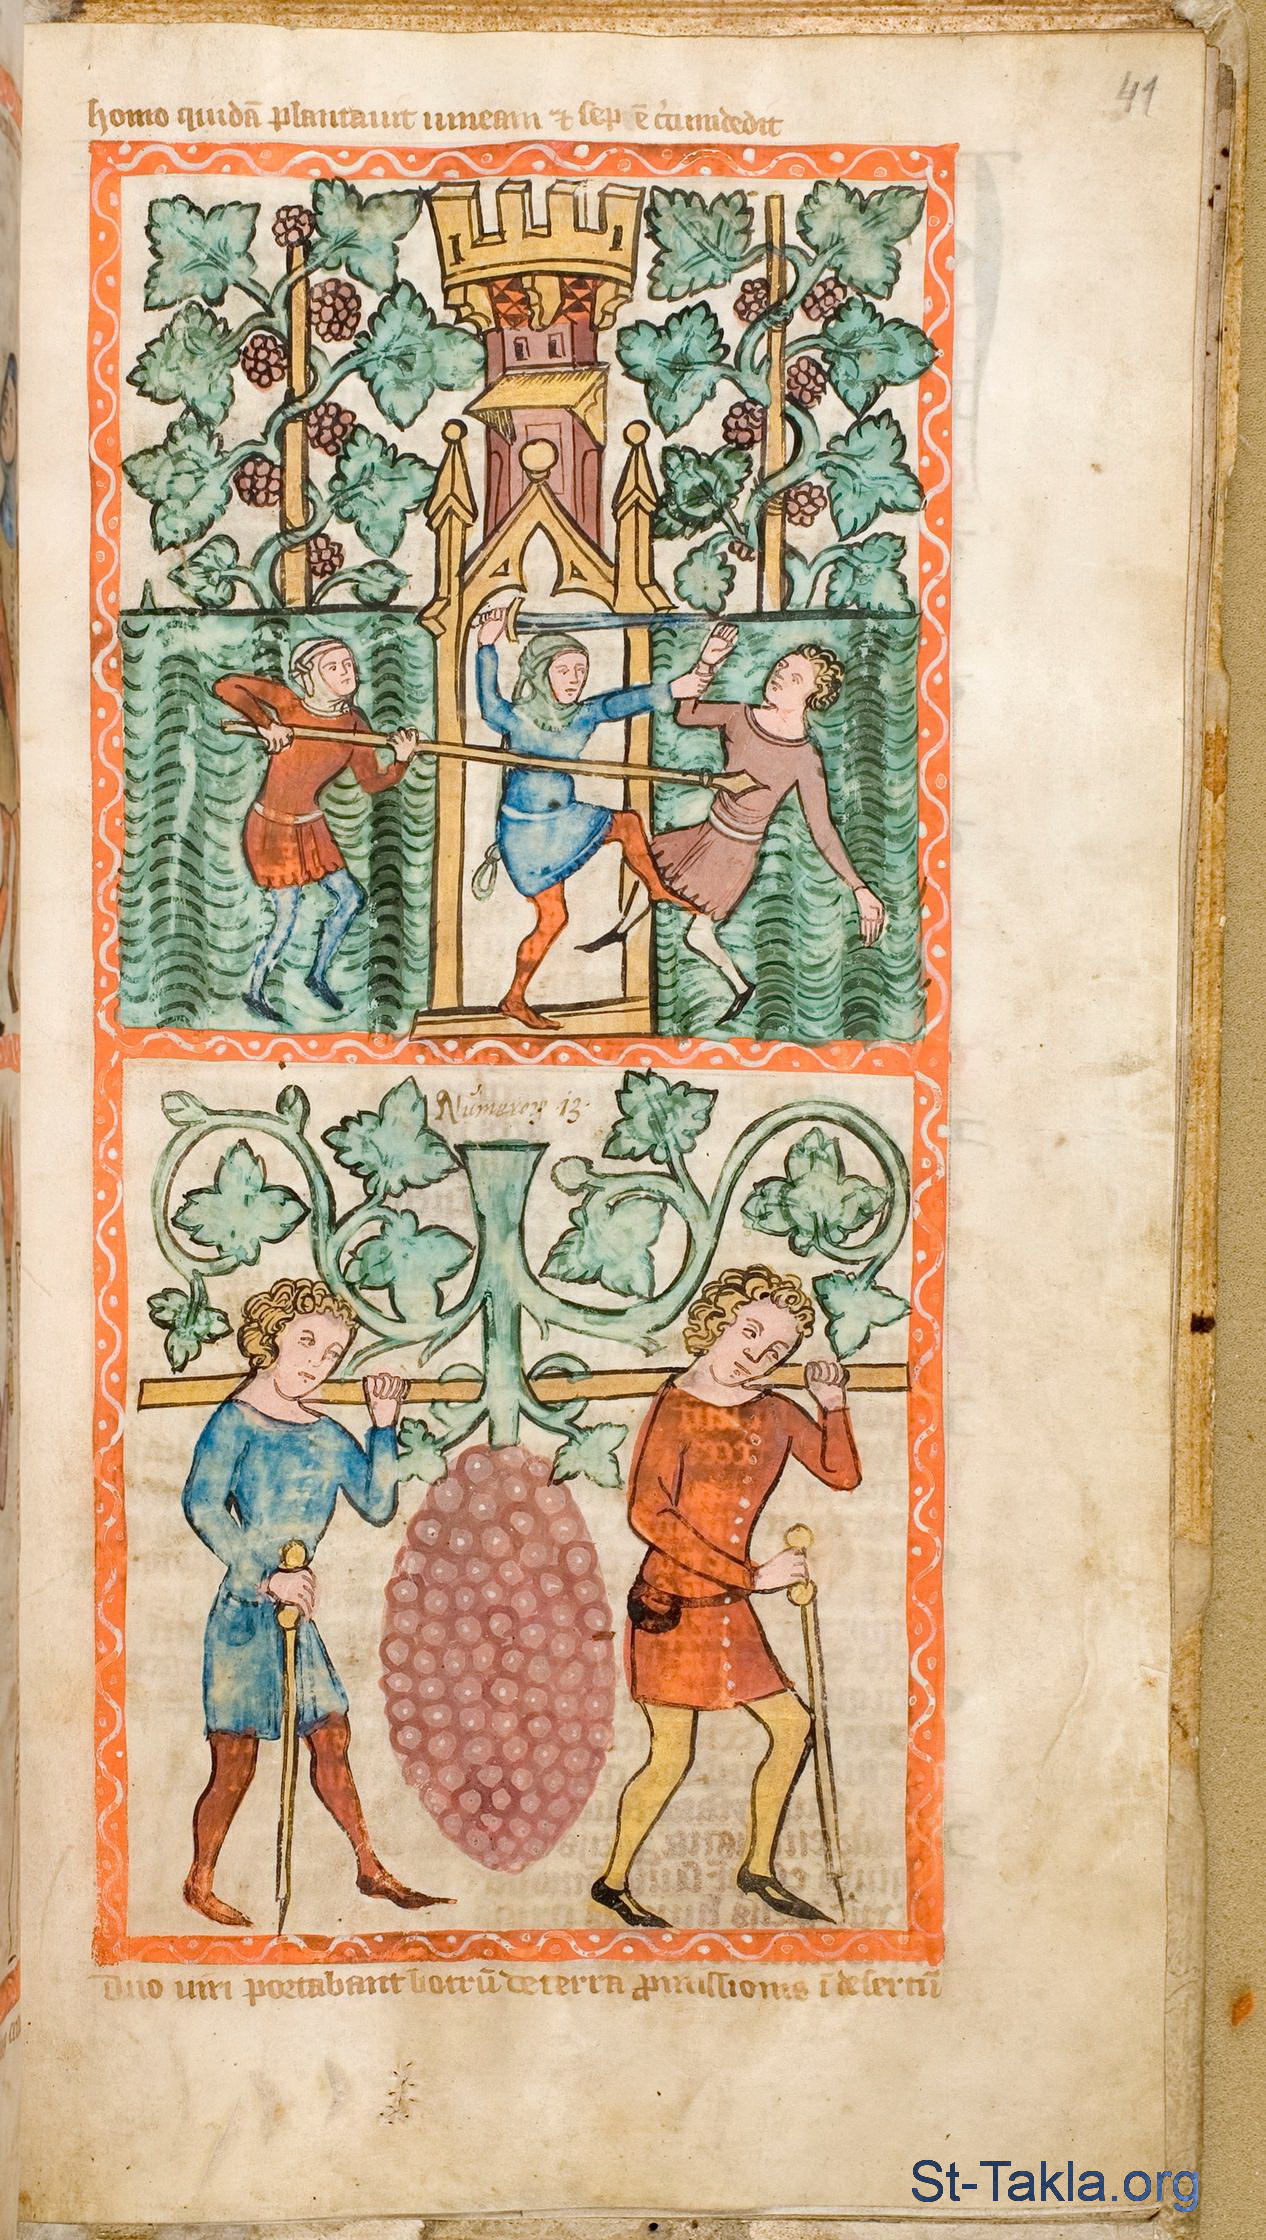 41
homo quidā plantauit uineam ⁊ sep ē cumdedit
Numerorum 13.
Duo uiri portabant botrū de terra ꝓmissionis ī desertū
St-Takla.org